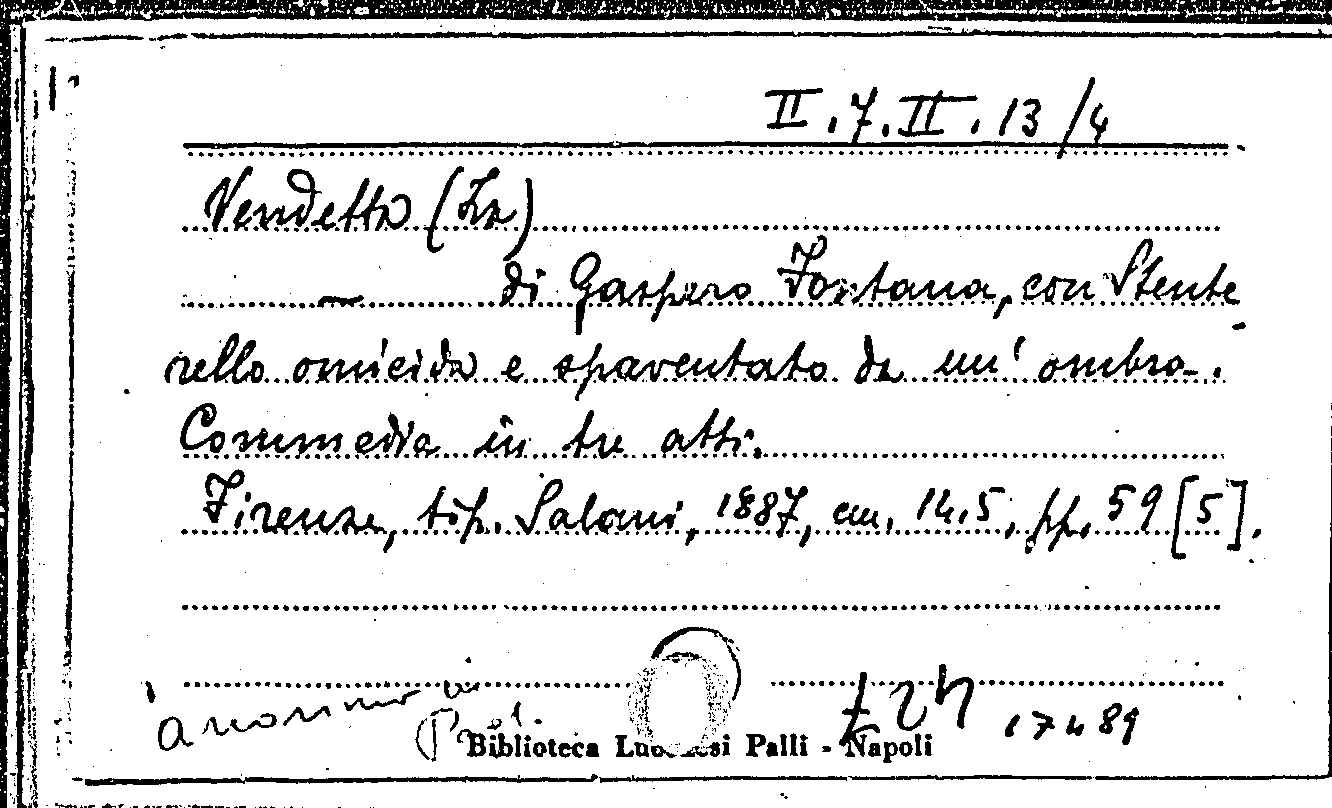 II.7.II.13/4
Vendetta (La)
— di Gasparo Fontana, con Stente
rello omicida e spaventato da un' ombra.
Commedia in tre atti.
Firenze, tip. Salani, 1887, cm. 14.5, pp. 59 [5].
anonimo in
Biblioteca Lucchesi Palli - Napoli
17489